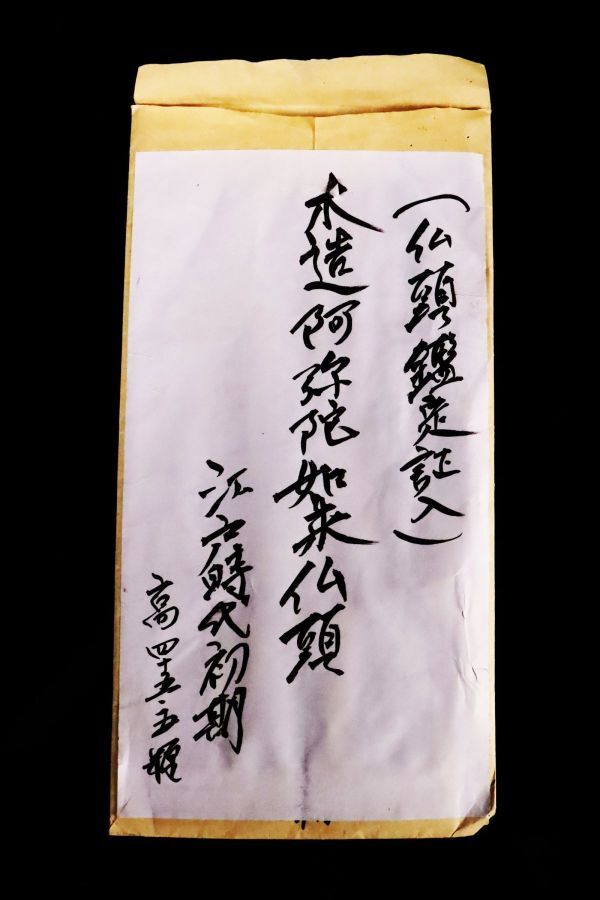 (仏頭鑑定証入)
木造阿弥陀如来仏頭
江戸時代初期
高四十五・五糎